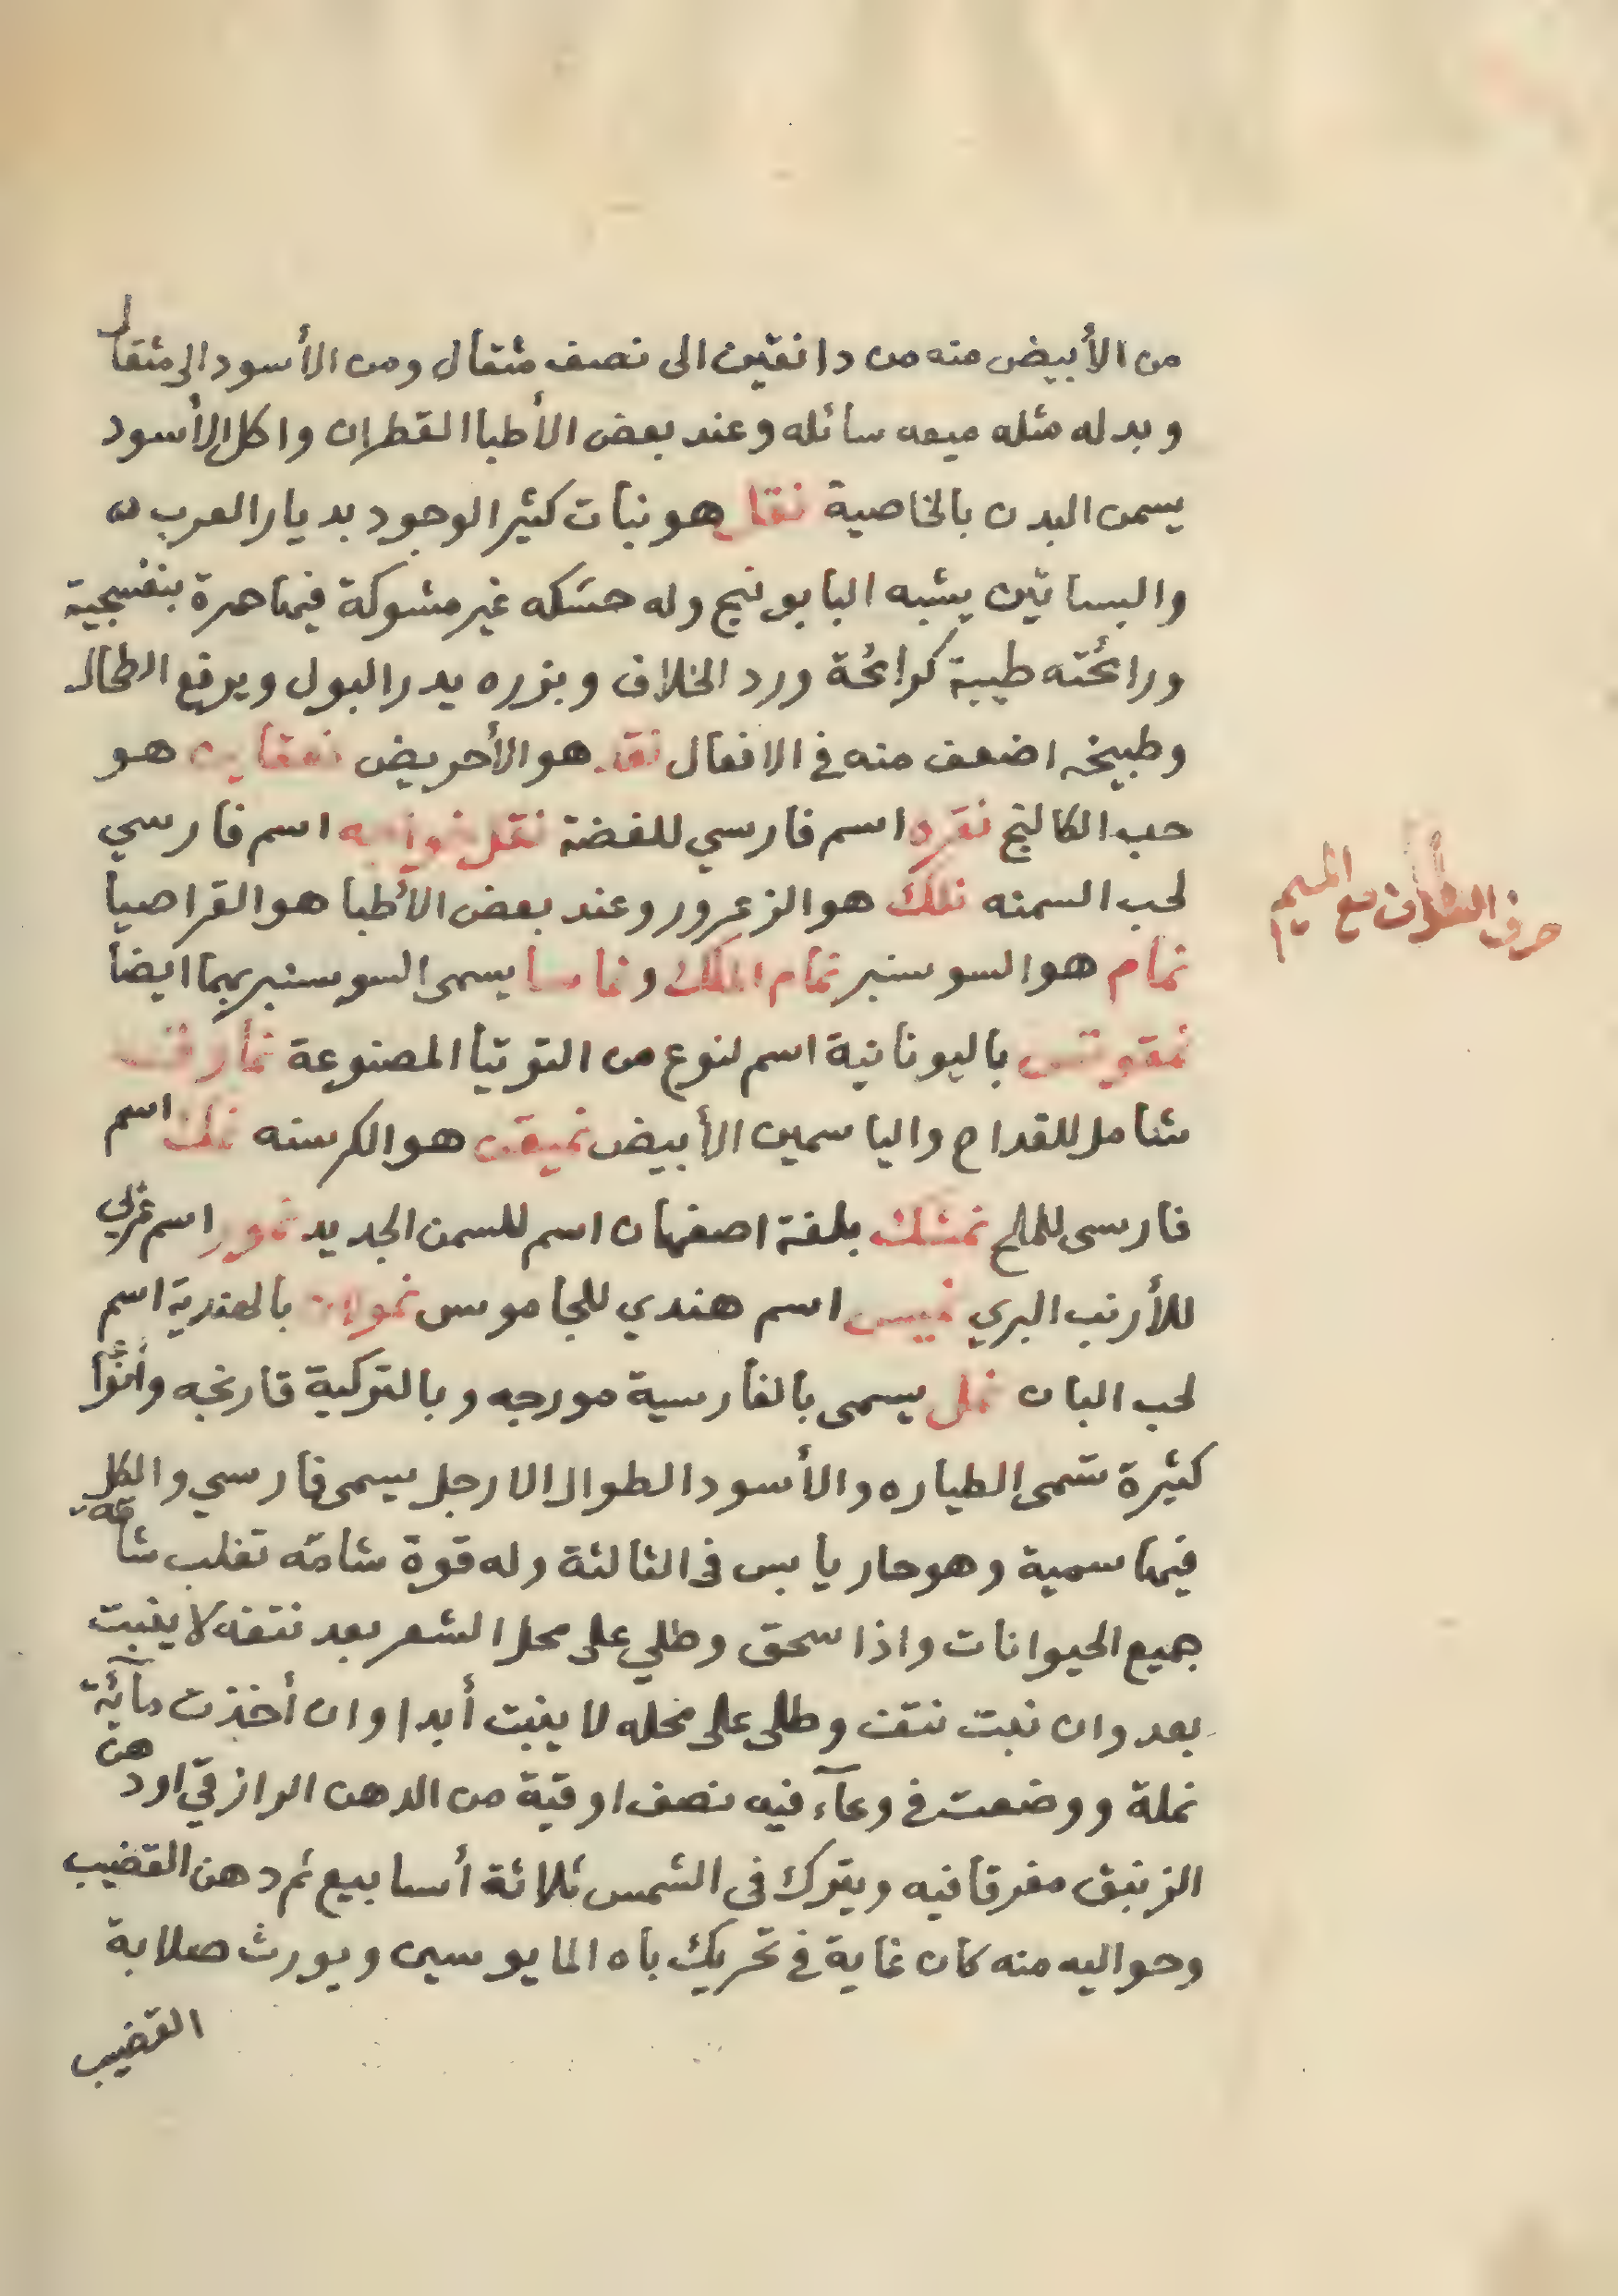 من الأبيض منه من دانقين الى نصف مثقال ومن الأسود الى مثقال
وبدله مثله ميعه سائله وعند بعض الأطبا القطران واكل الأسود
يسمن البدن بالخاصية نقل هو نبات كثير الوجود بديار العرب
والبساتين يشبه البابونج وله حسَكه غير مشوكة فيها حمرة بنفسجية
ورائحته طيبة كرائحة ورد الخلاف وبزره يدر البول ويرفع الطحال
وطبيخه اضعف منه في الافعال نقد هو الأحريض هو
حب الكاكنج نقره اسم فارسي للفضة نقل خواجه اسم فارسي
لحب السمنه نلك هو الزعرور وعند بعض الأطبا هو القراصيا
حرف النون مع الميم
نمام هو السوسنبر نمام الملك و نماسا يسمى السوسنبر بهما ايضا
باليونانية اسم لنوع من التوتيا المصنوعة نمارق
شامل للقداح والياسمين الأبيض نميقن هو الكرسنه نمك اسم
فارسى للملح نمشك بلغة اصفهان اسم للسمن الجديد نمور اسم عربي
للأرنب البري نميس اسم هندي للجاموس بالهندية اسم
لحب البان نمل يسمى بالفارسية مورجه وبالتركية قارنجه وأنواع
كثيرة تسمى الطياره والأسود الطوال الارجل يسمى فارسي والكل
فيها سمية وهو حار يابس فى الثالثة وله قوة شامّه تغلب شامّة
جميع الحيوانات واذا سحق وطلي على محل الشعر بعد نتفه لا ينبت
بعد وان نبت نتف وطلى على محله لا ينبت أبدا وان أخذت مآئة
نملة ووضعت في وعآء فيه نصف اوقية من الدهن الرازقي اودهن
الزنبق مغرقا فيه ويترك فى الشمس ثلاثة أسابيع ثم دهن القضيب
وحواليه منه كان غاية في تحريك باه المايوسين ويورث صلابة
القضيب